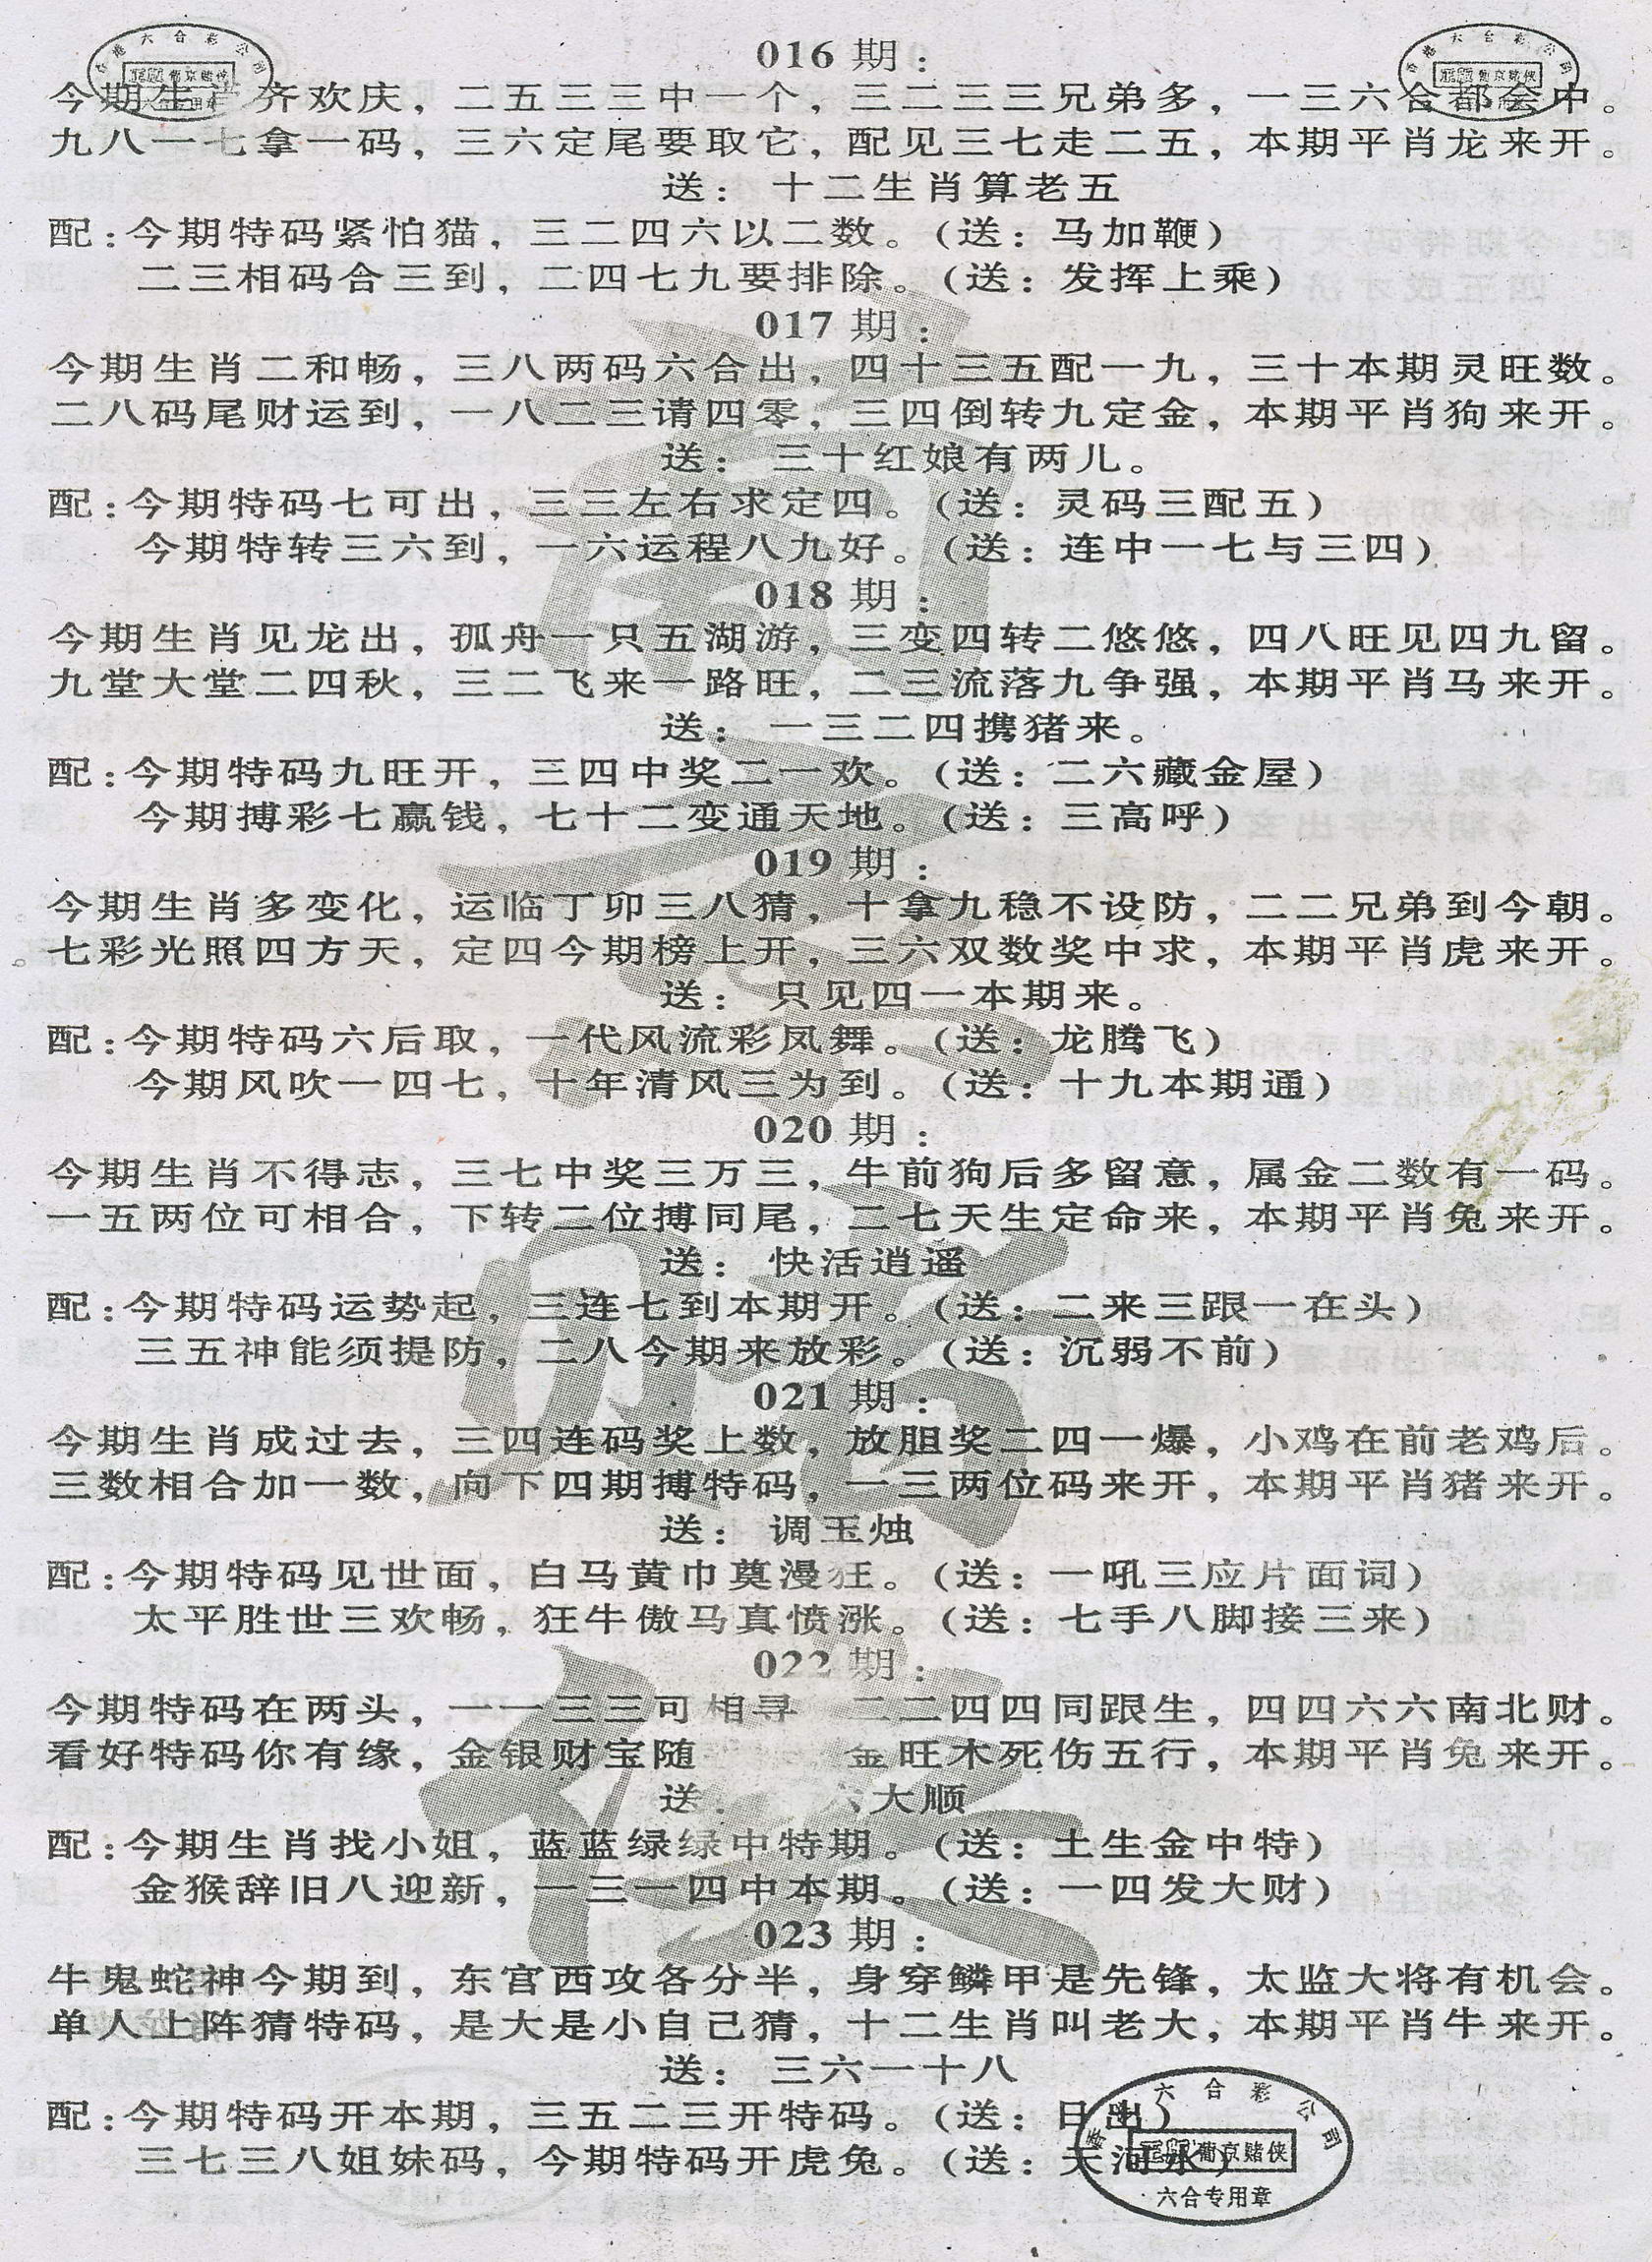 016期：
今期生肖齐欢庆，二五三三中一个，三二三三兄弟多，一三六合都会中。
九八一七拿一码，三六定尾要取它，配见三七走二五，本期平肖龙来开。
送：十二生肖算老五
配：今期特码紧怕猫，三二四六以二数。（送：马加鞭）
二三相码合三到，二四七九要排除。（送：发挥上乘）
017期：
今期生肖二和畅，三八两码六合出，四十三五配一九，三十本期灵旺数。
二八码尾财运到，一八二三请四零，三四倒转九定金，本期平肖狗来开。
送：三十红娘有两儿。
配：今期特码七可出，三三左右求定四。（送：灵码三配五）
今期特转三六到，一六运程八九好。（送：连中一七与三四）
018期：
今期生肖见龙出，孤舟一只五湖游，三变四转二悠悠，四八旺见四九留。
九堂大堂二四秋，三二飞来一路旺，二三流落九争强，本期平肖马来开。
送：一三二四携猪来。
配：今期特码九旺开，三四中奖二一欢。（送：二六藏金屋）
今期搏彩七赢钱，七十二变通天地。（送：三高呼）
019期：
今期生肖多变化，运临丁卯三八猜，十拿九稳不设防，二二兄弟到今朝。
七彩光照四方天，定四今期榜上开，三六双数奖中求，本期平肖虎来开。
送：只见四一本期来。
配：今期特码六后取，一代风流彩凤舞。（送：龙腾飞）
今期风吹一四七，十年清风三为到。（送：十九本期通）
020期：
今期生肖不得志，三七中奖三万三，牛前狗后多留意，属金二数有一码。
一五两位可相合，下转二位搏同尾，二七天生定命来，本期平肖兔来开。
送：快活逍遥
配：今期特码运势起，三连七到本期开。（送：二来三跟一在头）
三五神能须提防，二八今期来放彩。（送：沉弱不前）
021期：
今期生肖成过去，三四连码奖上数，放胆奖二四一爆，小鸡在前老鸡后。
三数相合加一数，向下四期搏特码，一三两位码来开，本期平肖猪来开。
送：调玉烛
配：今期特码见世面，白马黄巾奠漫狂。（送：一吼三应片面词）
太平胜世三欢畅，狂牛傲马真愤涨。（送：七手八脚接三来）
022期：
今期特码在两头，一一三三可相寻 二二四四同跟生，四四六六南北财。
看好特码你有缘，金银财宝随 金旺木死伤五行，本期平肖兔来开。
送 六大顺
配：今期生肖找小姐，蓝蓝绿绿中特期。（送：土生金中特）
金猴辞旧八迎新，一三一四中本期。（送：一四发大财）
023期：
牛鬼蛇神今期到，东宫西攻各分半，身穿鳞甲是先锋，太监大将有机会。
单人上阵猜特码，是大是小自己猜，十二生肖叫老大，本期平肖牛来开。
送：三六一十八
配：今期特码开本期，三五二三开特码。（送：日出）
三七三八姐妹码，今期特码开虎兔。（送：天河水）
香港六合彩公司
葡京赌侠
六合专用章